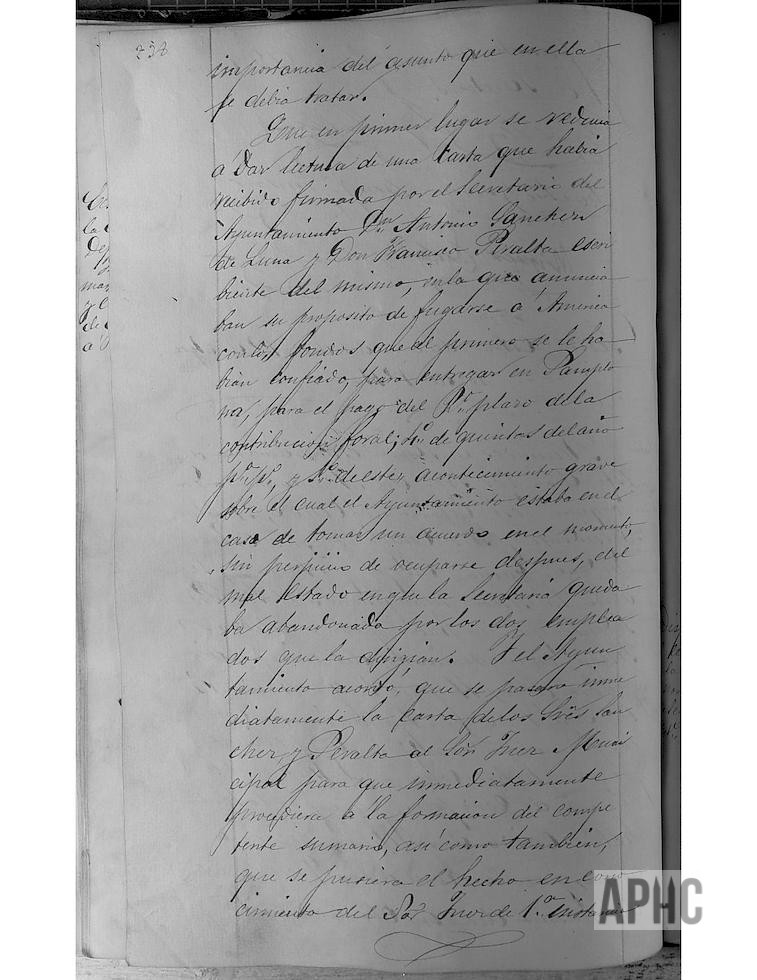 738
importancia del asunto que en ella
se debia tratar.
Que en primer lugar se reducia
á Dar lectura de una Carta que habia
recibido firmada por el Secretario del
Ayuntamiento Dn. Antonio Sanchez
de Luna y Don Francisco Peralta escri
biente del mismo, en la que anuncia
ban su proposito de fugarse á America
con los fondos que al primero se le ha
bian confiado, para entregar en Pamplo
na, para el pago del plazo de la
contribucion foral; de quintas del año
y de este, acontecimiento grave
sobre el cual el Ayuntamiento estaba en el
caso de tomar un acuerdo en el momento,
sin perjuicio de ocuparse despues, del
mal Estado en que la Secretaria queda
ba abandonada por los dos emplea
dos que la dirigian. Y el Ayun
tamiento acordó, que se pasara inme
diatamente la Carta de los Sres San
chez, y Peralta al Sor Juez Muni
cipal para que inmediatamente
procediera a la formacion del compe
tente sumario, así como tambien,
que se pusiera el hecho en cono
cimiento del Sor Juez de 1.a instancia
APHC